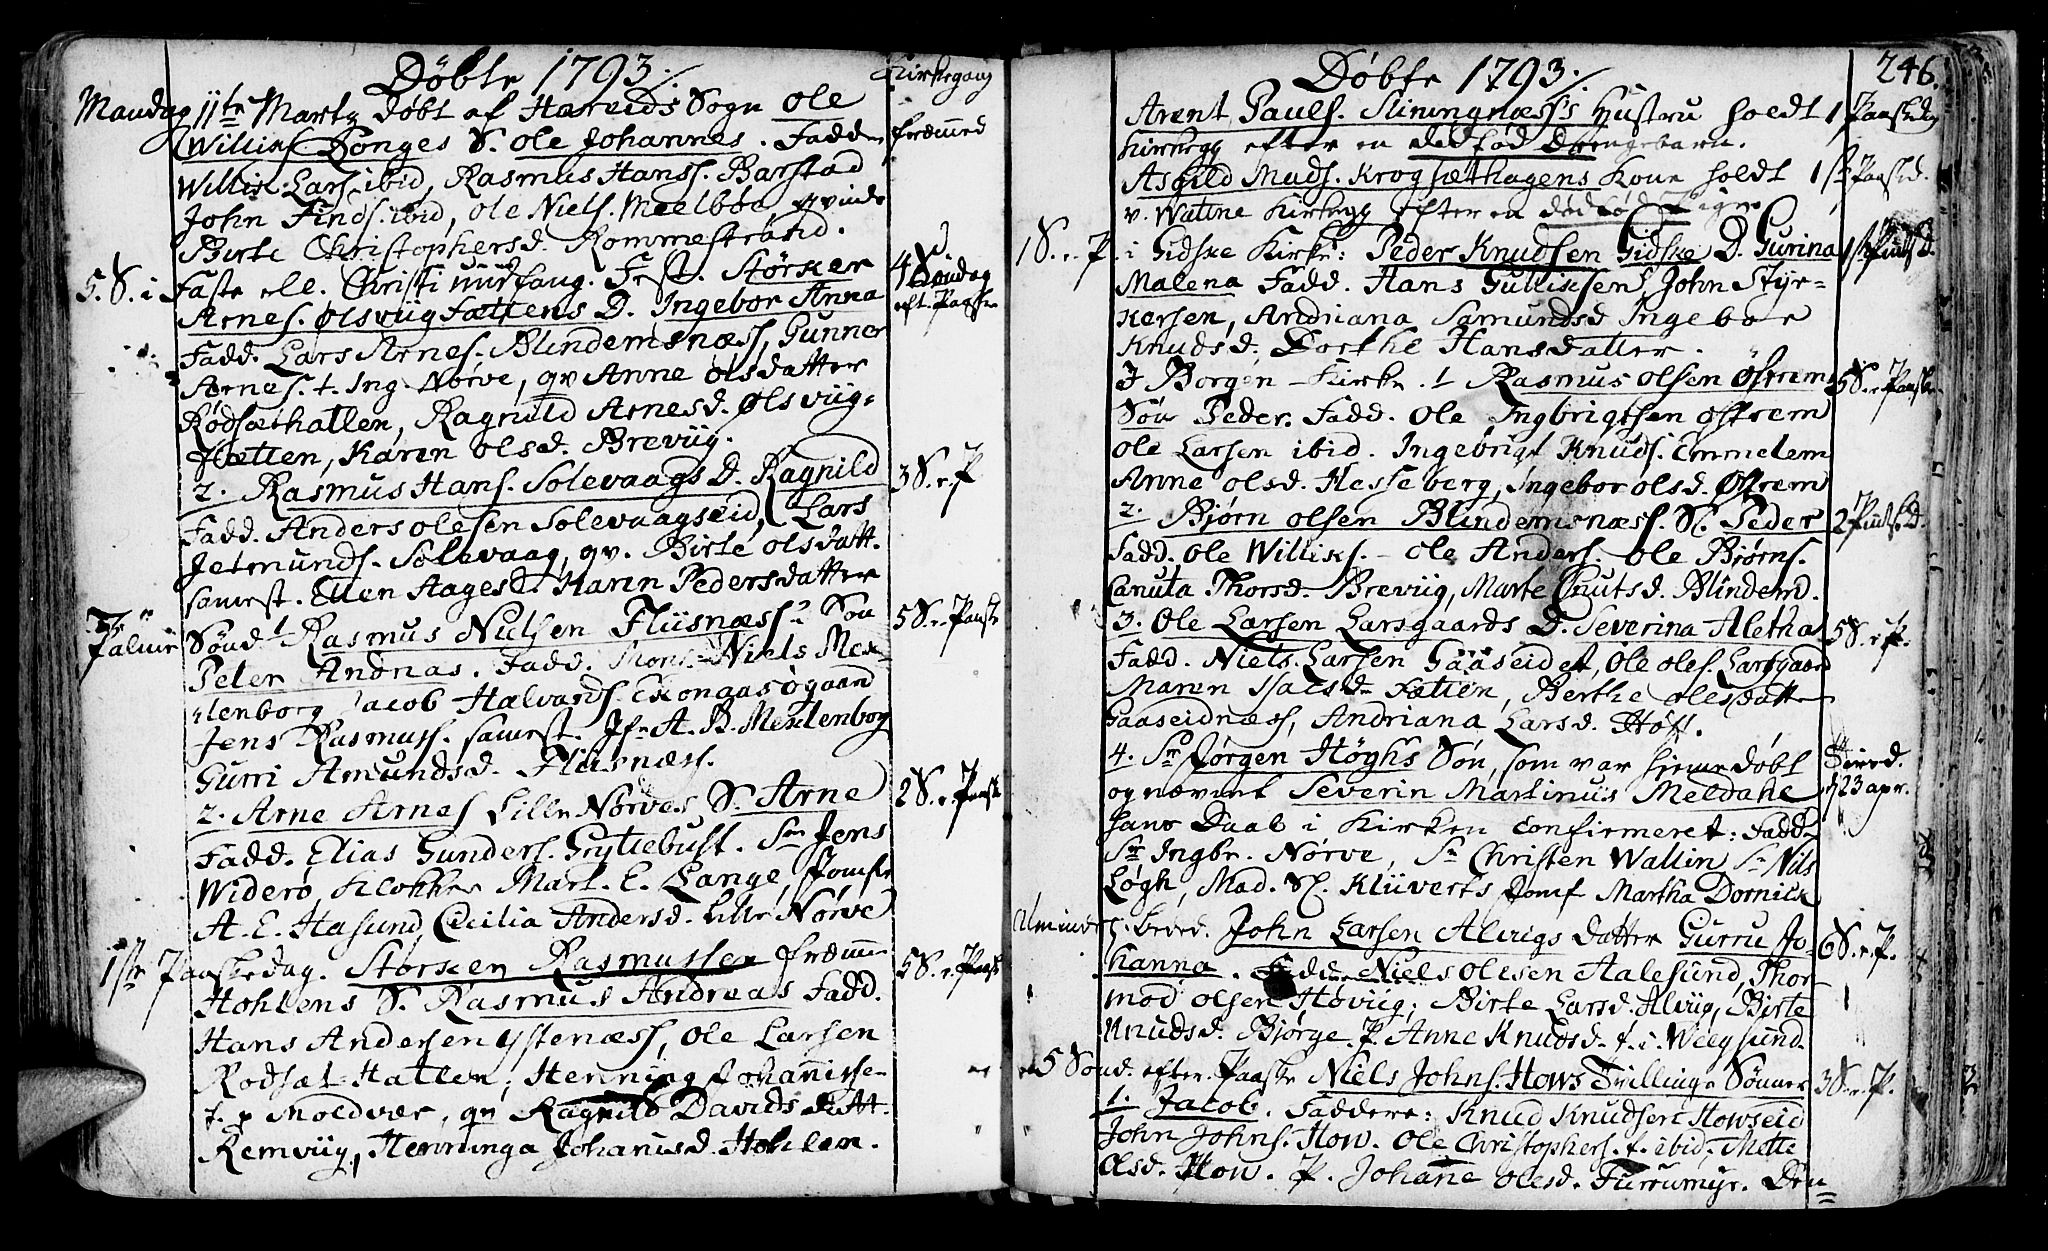 Döbte 1793. Kirkegang
Mandag 11te Martz döbt af Hareids Sogn Ole
Williks. Ponges S. Ole Johannes. Fadd. fræmed
Willik Lars. ibid, Rasmus Hanss. Barstad
John Finds. ibid, Ole Niels. Meelböe, qvinde
Birte Christophersd. Rommestrand.
5. S. i Faste ell. Christi undfang. Fest. Störker 4 Söndag
Arnes. Ølsviig Fættens D. Ingebor Anna eft. Paaske
Fadd. Lars Arnes. Blindemsnæss, Gunner
Arnes. t. Ing. Nørve, qv Anne Olsdatter
Rødsæthatlen, Ragnild Arnesd. Ølsviig-
fætten, Karen Olsd. Breviig.
2. Rasmus Hans. Solevaags D. Ragnild 3 S. e. P
Fadd. Anders Olesen Solevaagseid, Lars
Jetmunds. Solevaag, qv. Birte Olsdatt.
samest. Ellen Hagesd. Karen Pedersdatter
Palme Sönd. 1 Rasmus Nielsen Fliisnæss: Sön 5 S. e. Paaske
Peter Andreas. Fadd. Mons. Niels Mek-
lenborg Jacob Halvards. Ekongasøgaard
Jens Rasmuss. samest. Jfr A. B. Meklenborg
Gurri Amundsd. Fliisnæss.
2. Arne Arnes Lille Nørves S. Arne 2 S. e. Paaske
Fadd. Elias Gunders. Grytiebust. Sr Jens
Widerö, Klokker Mart. E. Lange, Jomfr
A. E. Hasund, Cecilia Andersd. Lille Nørve
1ste Paaskedag. Störken Rasmussen fræm 5 S. e. Paask
Hohlens S. Rasmus Andreas Fadd.
Hans Andersen Ystenæss, Ole Larsen
Rodsæt-Hatlen, Henning Johannisse-
t. p Moldvær, qv Ragnild Davids datt.
Remviig, Henninga Johanisd. Hohlen.
Döbte 1793. 246.
Arent Pauls. Sliningnæss's Hustru holdt 1 Paaskedag
Kirkegg efter en dødfød Drengebarn.
Asgild Mads. Krogsæthagens Kone holdt 1ste Paaskd.
v. Watne Kirkegg efter en dødfød Pige
1 S. e. P. i Gidske Kirke: Peder Knudsen Gidske D. Gurina 1ste Pintsd.
Malena Fadd. Hans Gulliksen, John Styr-
kersen, Andriana Samundsd Ingebor
Knudsd. Dorthe Hansdatter.
I Borgen-Kirke. 1 Rasmus Olsen Øfrems 5 S. e. Paaske
Sön Peder. Fadd. Ole Ingbrigtsen Øfrem
Ole Larsen ibid. Ingebrigt Knuds. Emmelem
Anne Olsd. Hesseberg, Ingebor Olsd. Øfrem
2. Bjørn Olsen Blindemsnæss. S. Peder 2 Pintse D.
Fadd. Ole Williks. - Ole Anders. Ole Bjørns.
Canuta Thorsd. Breviig, Marte Cnutsd. Blindem.
3. Ole Larsen Larsgaards D. Severina Aletha 5 S. e. P.
Fadd. Niels Larsen Gaaseidet, Ole Oles. Larsgaard
Maren Isacsd. Fætten, Berthe Olesdatter
Gaaseidnæss, Andriana Larsd. Höff.
4. Sr Jørgen Høghs Søn, som var hiemedøbt
og nævnt Severin Martinus Meldahl d 23 apr.
hans Daab i Kirken confirmeret: Fadd.
Sr Ingbr. Nørve, Sr Christen Wallin Sr Nils
Løgh, Mad. Sl. Klüverts Jomf Martha Dornick
Almindel. bed. John Larsen Alvigs datter Gurru Jo- 6 S. e. P.
hanna. Fadd. Niels Olesen Aalesund, Thor-
mod Olsen Høviig, Birte Larsd. Alviig, Birte
Knudsd. Bjørge. P. Anne Knudsd. t. i. Weegsund.
5 Sönd. efter Paaske Niels Johns. Hows Tvillinge Sønner 3 S. e. P.
1. Jacob. Faddere: Knud Knudsen Howseid
John Johns. How. Ole Christophers. t. ibid, Mette
Olsd. How. P. Johane Olesd. Furrumyr. Den